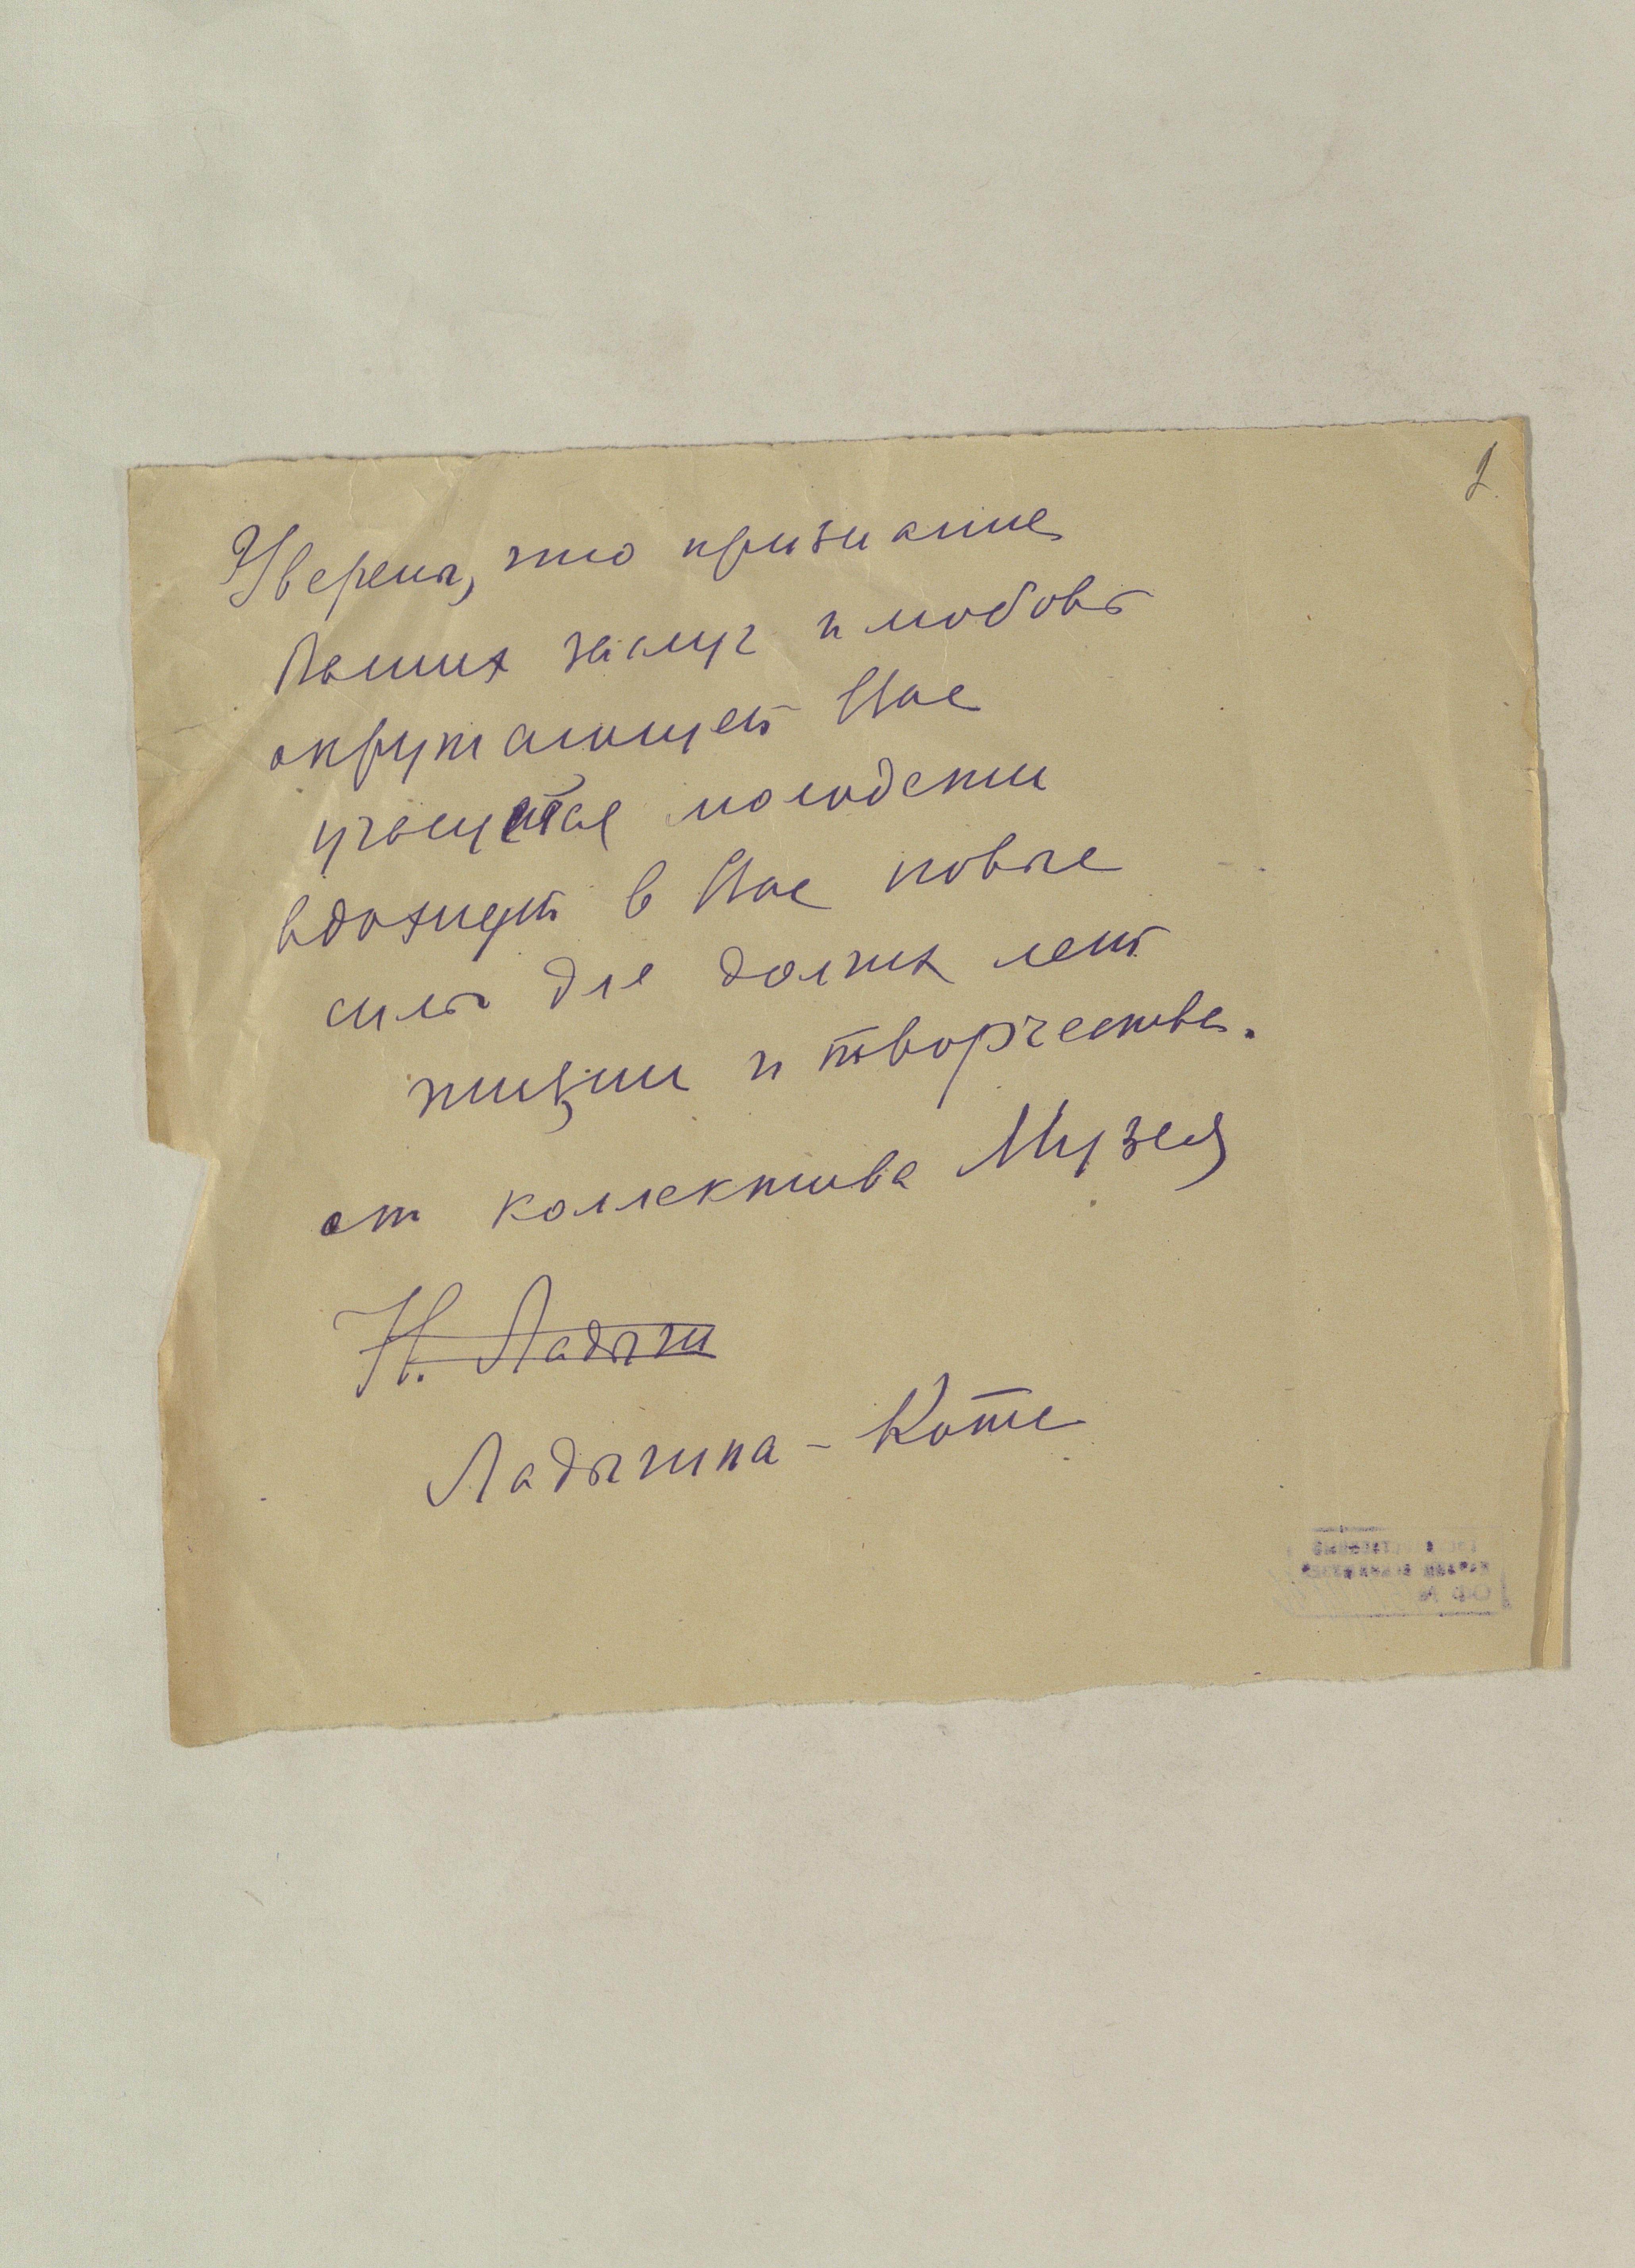 Уверены, что признание
Ваших заслуг и любовь
окружающей Вас
учащейся молодежи
вдохнут в Вас новые
силы для долгих лет
жизни и творчества.
от коллектива Музея
Н. Ладыги
Ладыгина-Котс